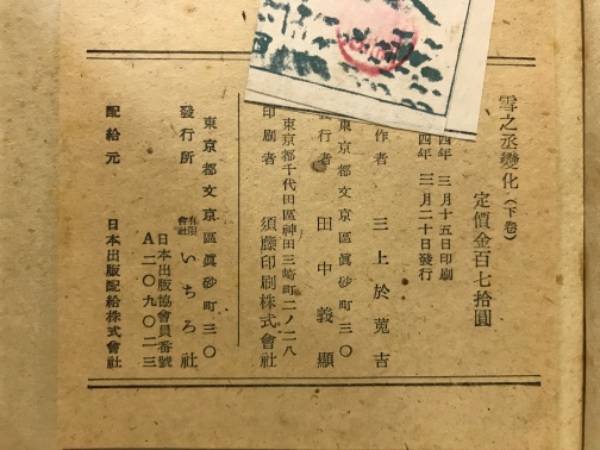 雪之丞變化(下卷)
定價金百七拾圓
四年 三月十五日印刷
四年 三月二十日發行
作者 三上於菟吉
東京都文京區眞砂町三〇
行者 田中義顯
東京都千代田區神田三崎町二ノ二八
印刷者 須藤印刷株式會社
東京都文京區眞砂町三〇
發行所 有限會社 いちろ社
日本出版協會員番號
A二〇九〇二三
配給元 日本出版配給株式會社